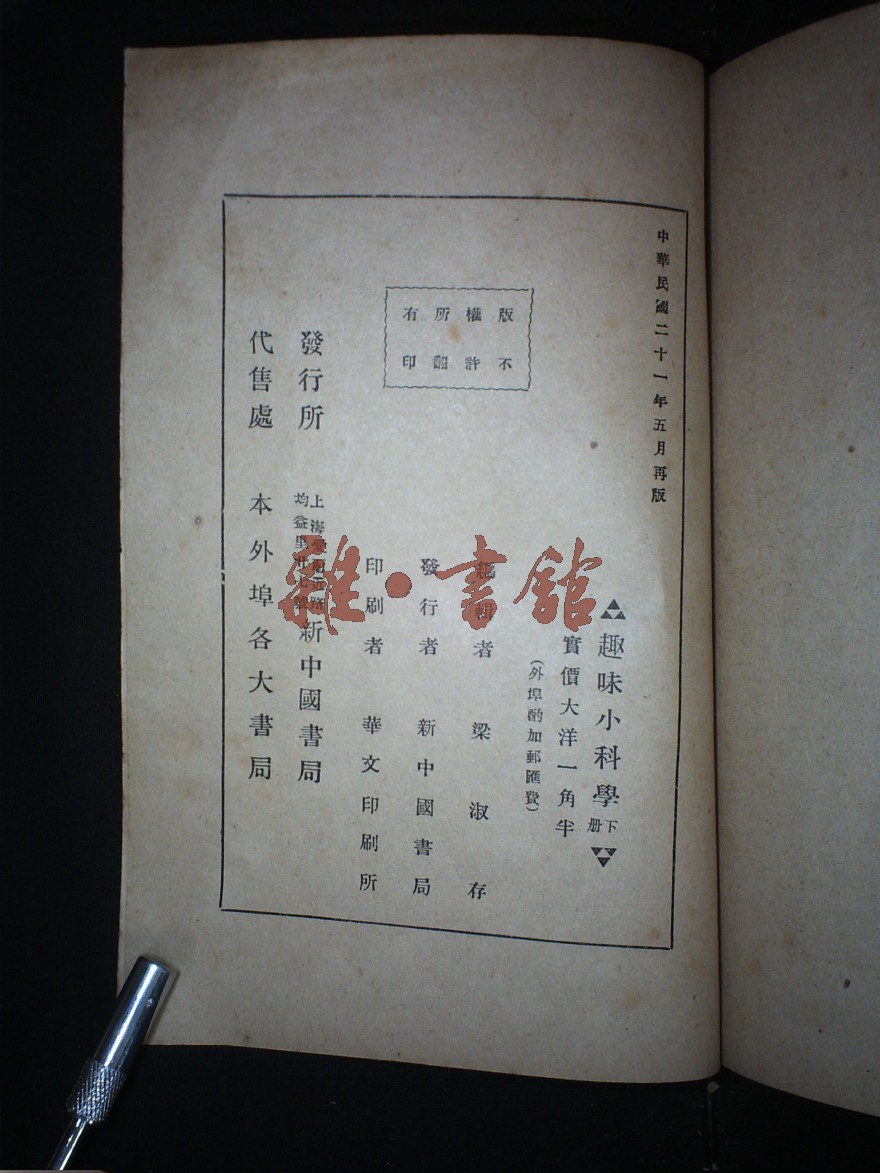 中華民國二十一年五月再版
趣味小科學下册
實價大洋一角半
(外埠酌加郵匯費)
編輯者 梁淑存
發行者 新中國書局
印刷者 華文印刷所
版權所有
不許翻印
發行所
上海
均益里
新中國書局
代售處 本外埠各大書局
雜·書館